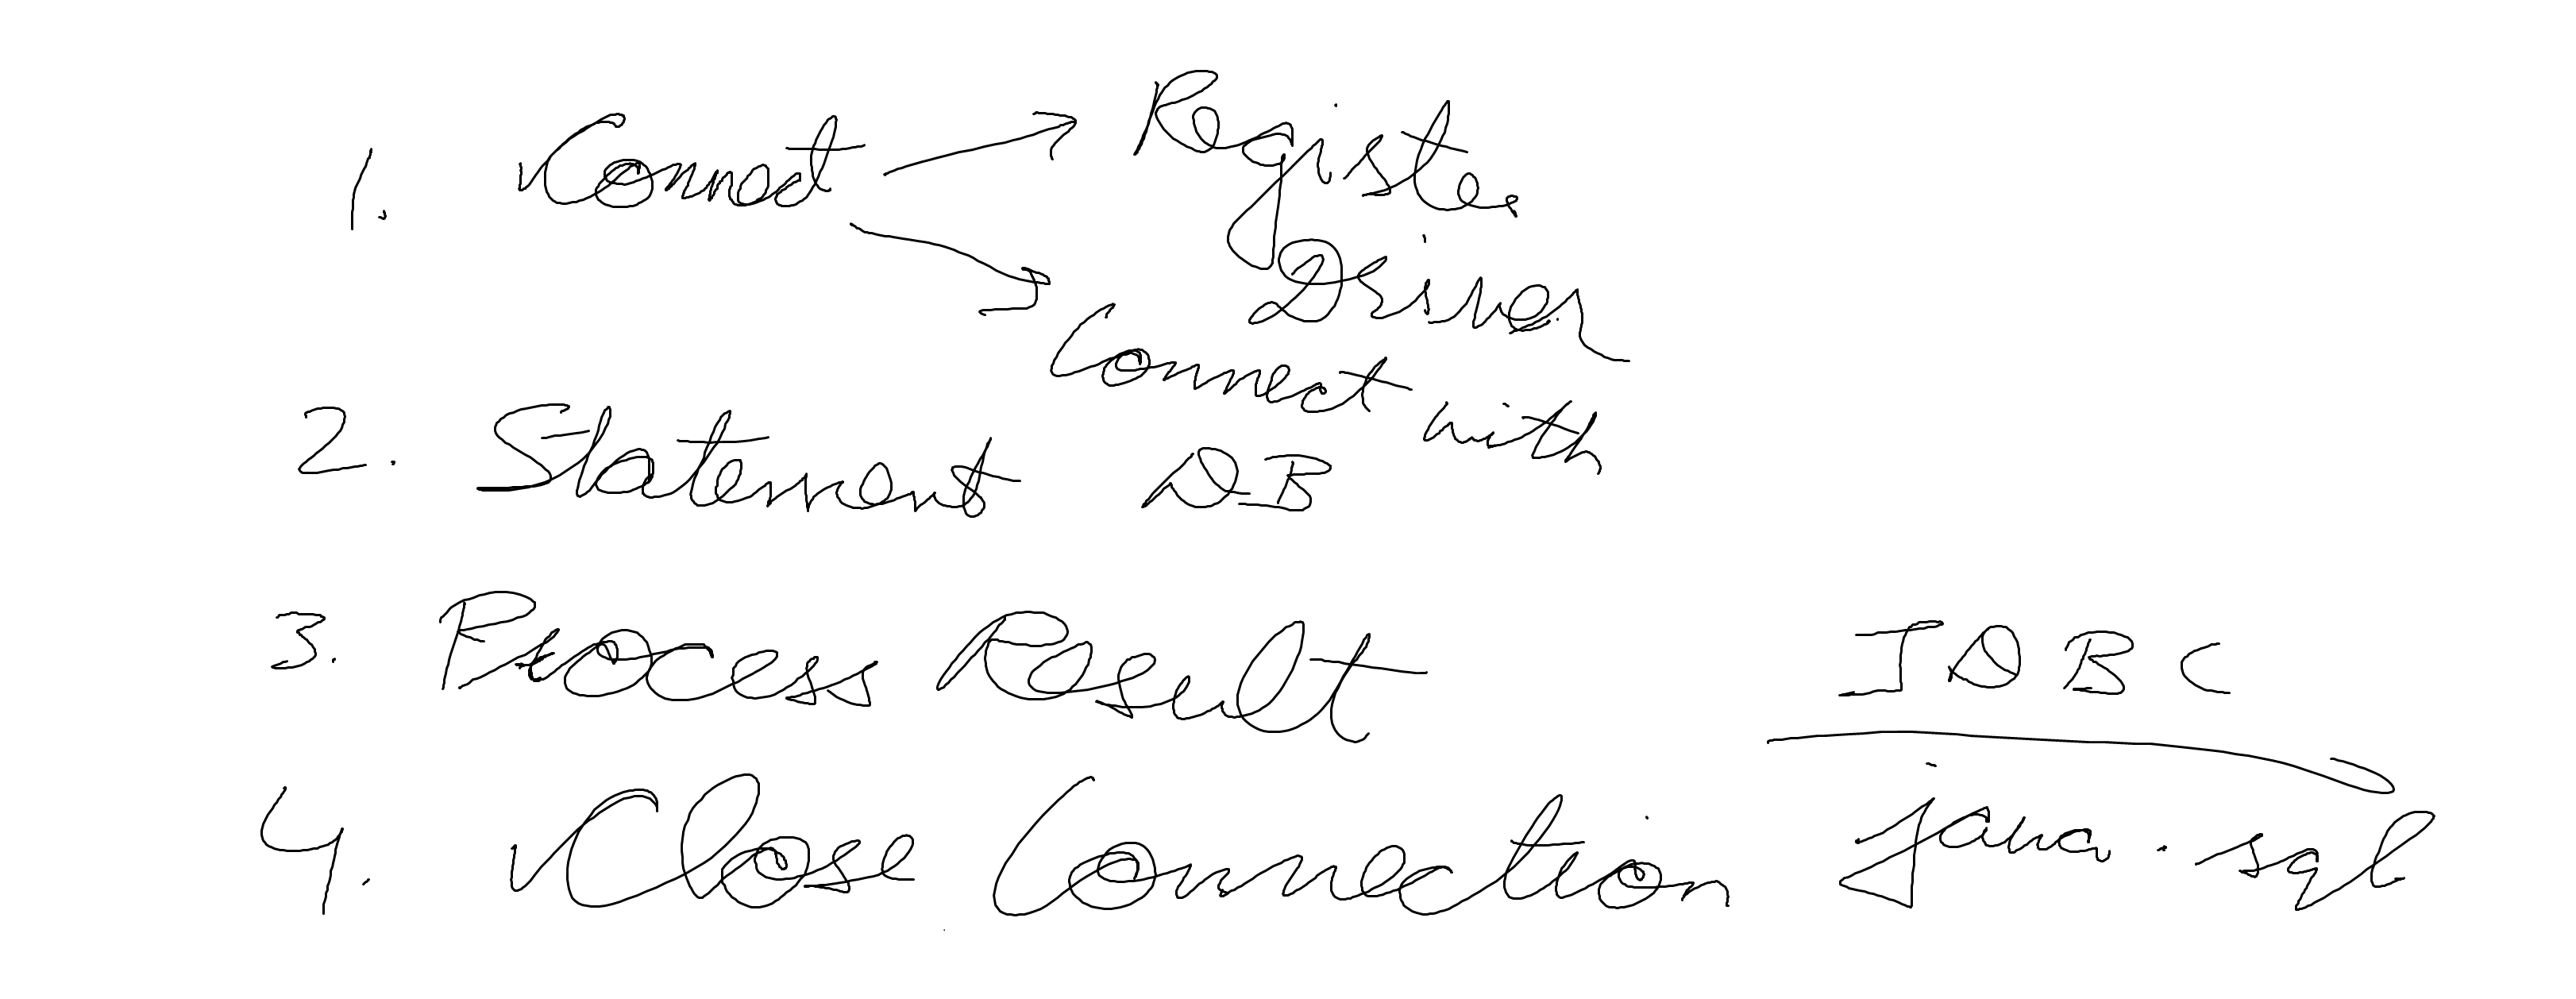 1. Connect → Register
Driver
→ Connect with
DB
2. Statement
3. Process Result
4. Close Connection
JDBC
java.sql